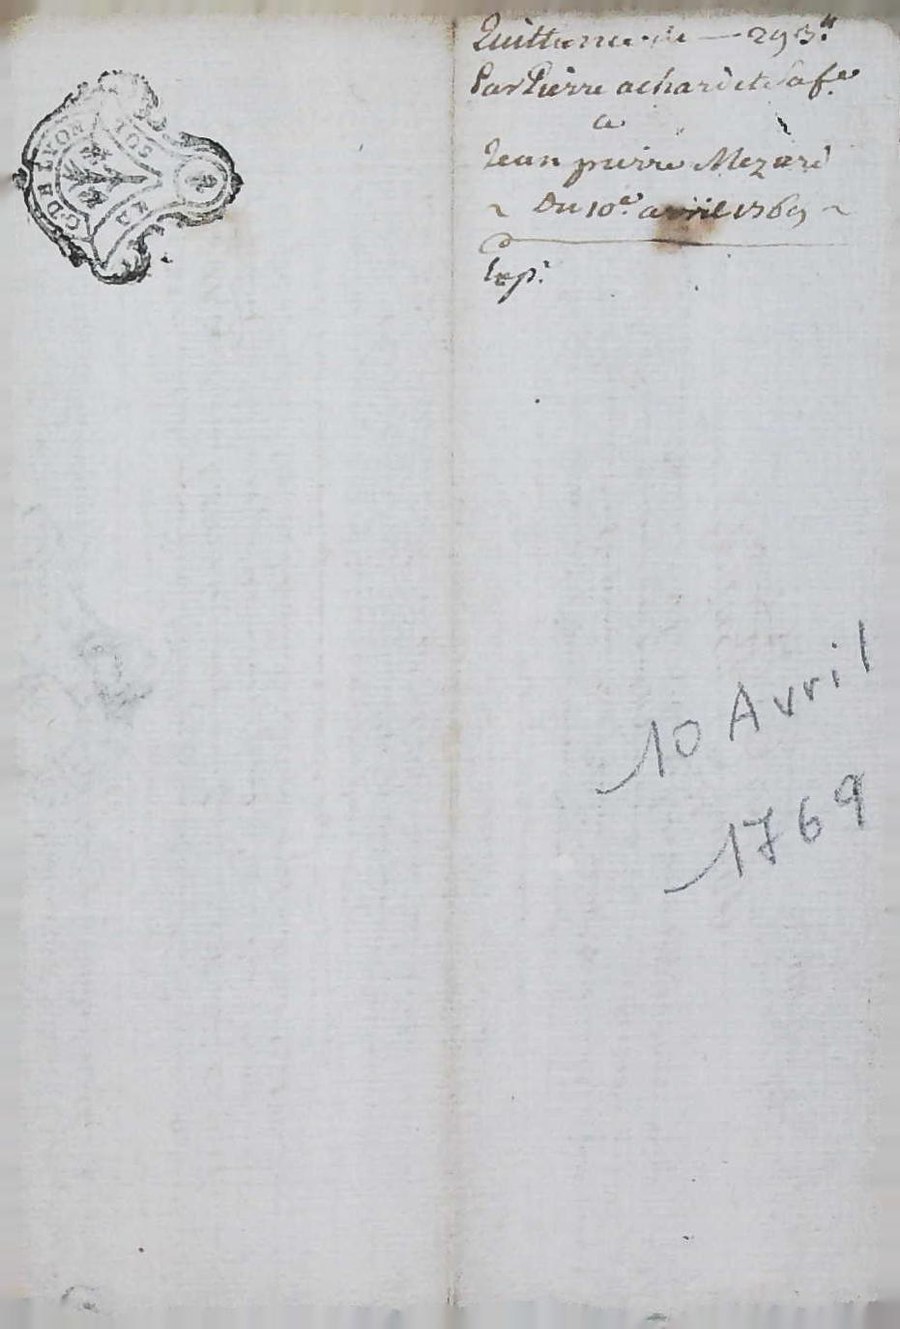 G. DE LYON
SOL
LA
Quittance de — 293.ᵗᵗ
Par Pierre achard et Sa fᵉ
a
Jean pierre Mezard
~ Du 10.ᵉ avril 1769 ~
Exp.ᵉ
10 Avril
1769